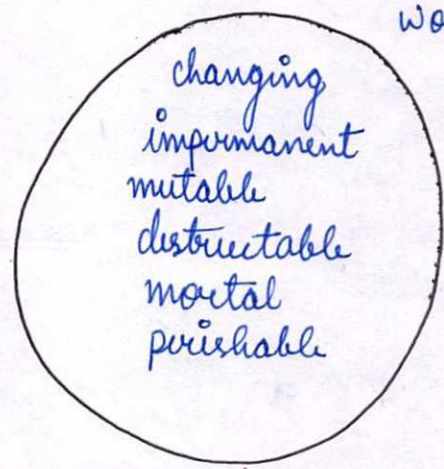 changing
impermanent
mutable
destructable
mortal
perishable